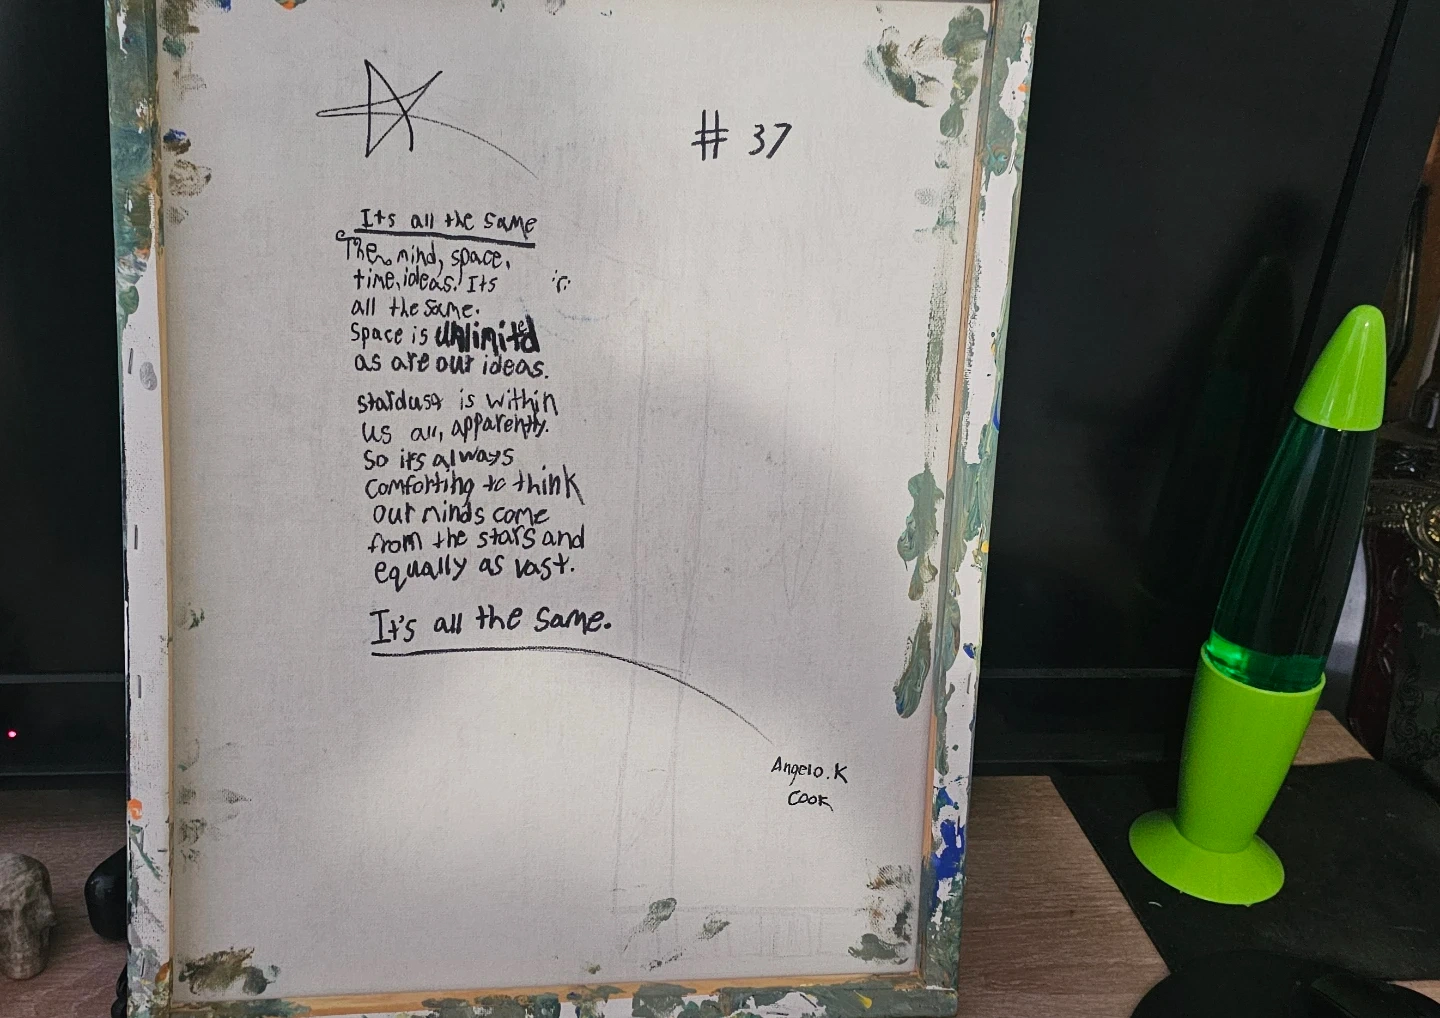 # 37
Its all the same
The mind, space,
time, ideas. Its
all the same.
Space is unlimited
as are our ideas.
stardust is within
us all, apparently.
So its always
comforting to think
our minds come
from the stars and
equally as vast.
It's all the same.
Angelo.K
Cook